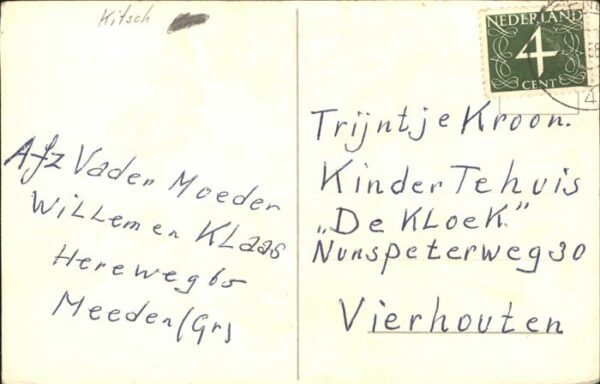 Kitsch
NEDERLAND
4
CENT
4
Afz Vader Moeder
Willem en Klaas
Hereweg 65
Meeden (Gr)
Trijntje Kroon.
Kinder Tehuis
„De Kloek."
Nunspeterweg 30
Vierhouten